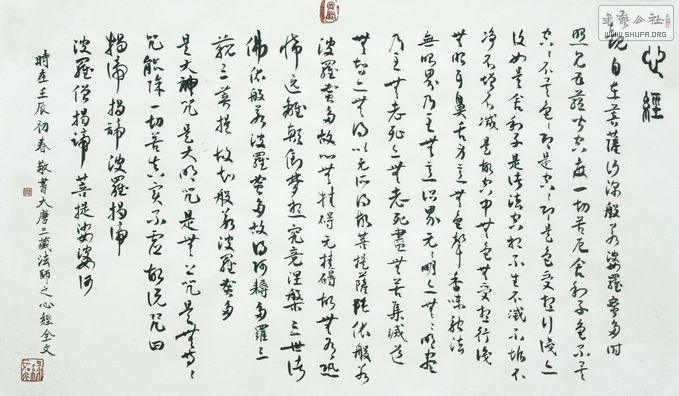 心經
觀自在菩薩行深般若波羅蜜多時
照見五蘊皆空度一切苦厄舍利子色不異
空空不異色色即是空空即是色受想行識亦
復如是舍利子是諸法空相不生不滅不垢不
淨不增不減是故空中無色無受想行識
無眼耳鼻舌身意無色聲香味觸法
無眼界乃至無意識界無無明亦無無明盡
乃至無老死亦無老死盡無苦集滅道
無智亦無得以無所得故菩提薩埵依般若
波羅蜜多故心無罣礙無罣礙故無有恐
怖遠離顛倒夢想究竟涅槃三世諸
佛依般若波羅蜜多故得阿耨多羅三
藐三菩提故知般若波羅蜜多
是大神咒是大明咒是無上咒是無等等
咒能除一切苦真實不虛故說咒曰
揭諦揭諦波羅揭諦
波羅僧揭諦菩提娑婆訶
時在壬辰初春敬書大唐三藏法師之心經全文
WWW.SHUFA.ORG